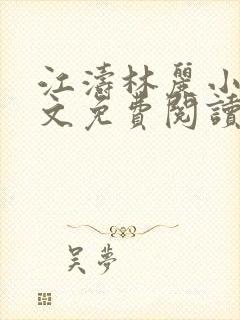 江濤林麗小
文免費閱讀
吴夢